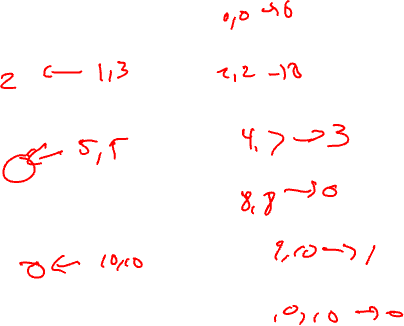 0,0 → 6
2 ← 1,3
2,2 → 3
4,7 → 3
← 5,5
8,8 → 0
9,10 → 1
0 ← 10,10
10,10 → 0